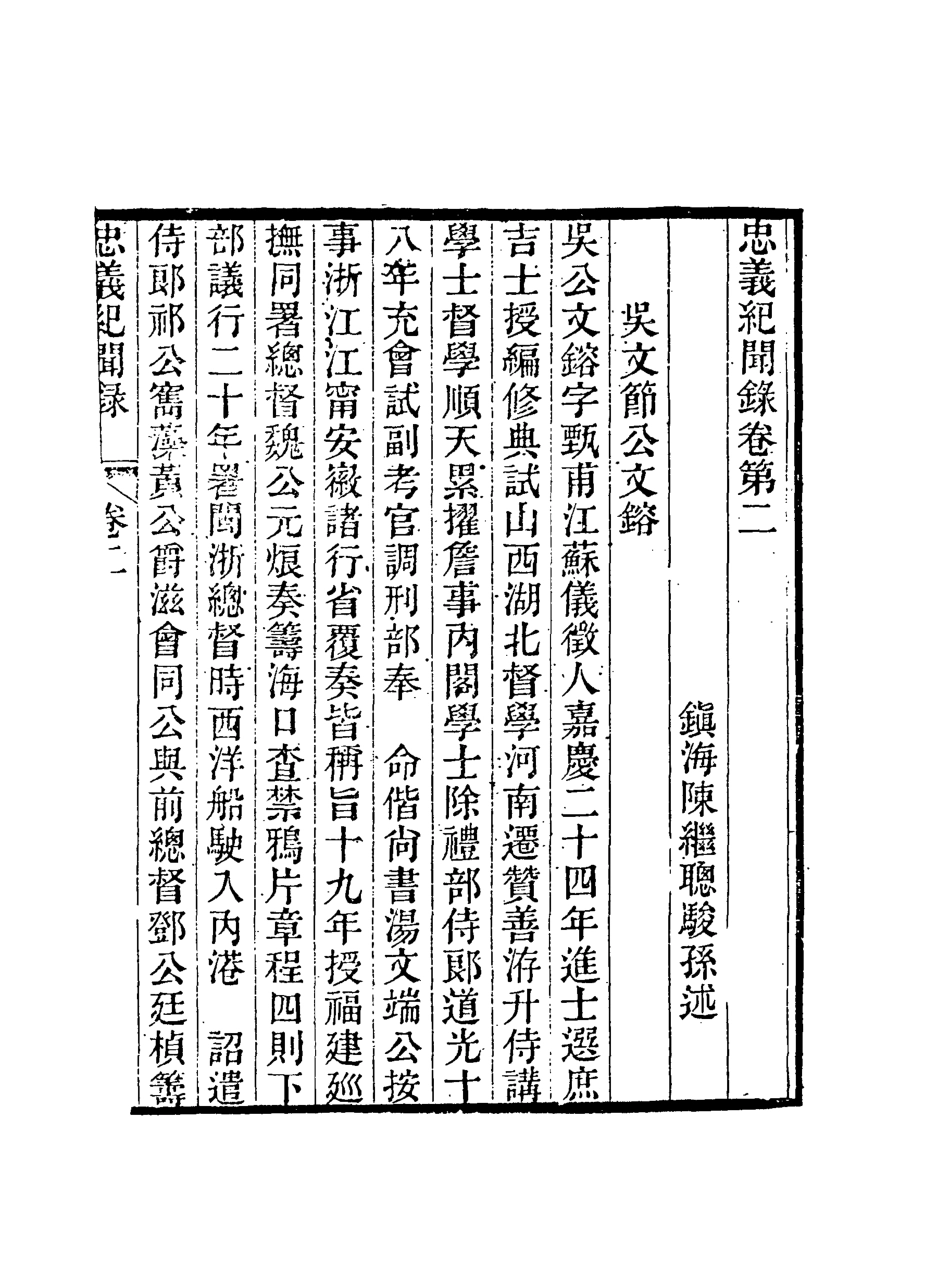 忠義紀聞錄卷第二
鎭海陳繼聰駿孫述
吳文節公文鎔
吳公文鎔字甄甫江蘇儀徵人嘉慶二十四年進士選庶
吉士授編修典試山西湖北督學河南遷贊善洊升侍講
學士督學順天累擢詹事內閣學士除禮部侍郞道光十
八年充會試副考官調刑部奉　命偕尙書湯文端公按
事浙江江甯安徽諸行省覆奏皆稱旨十九年授福建廵
撫同署總督魏公元烺奏籌海口查禁鴉片章程四則下
部議行二十年署閩浙總督時西洋船駛入內港　詔遣
侍郞祁公寯藻黃公爵滋會同公與前總督鄧公廷楨籌
忠義紀聞錄　卷二